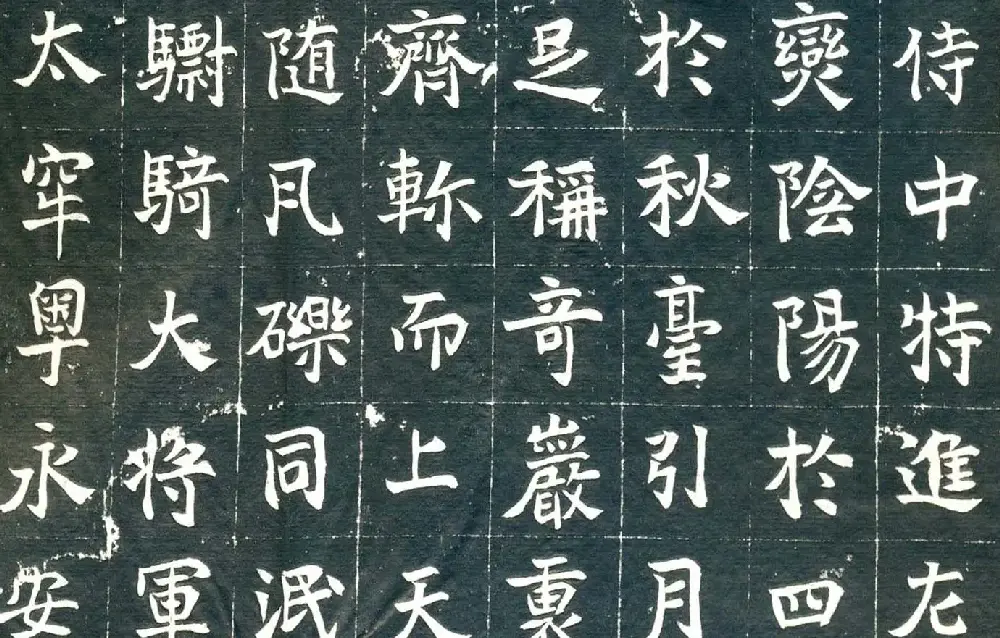 侍中特進左
燮陰陽於四
於秋臺引月
足稱奇巖裏
齊軫而上天
随凡礫同泯
驃騎大將軍
太牢粵永安